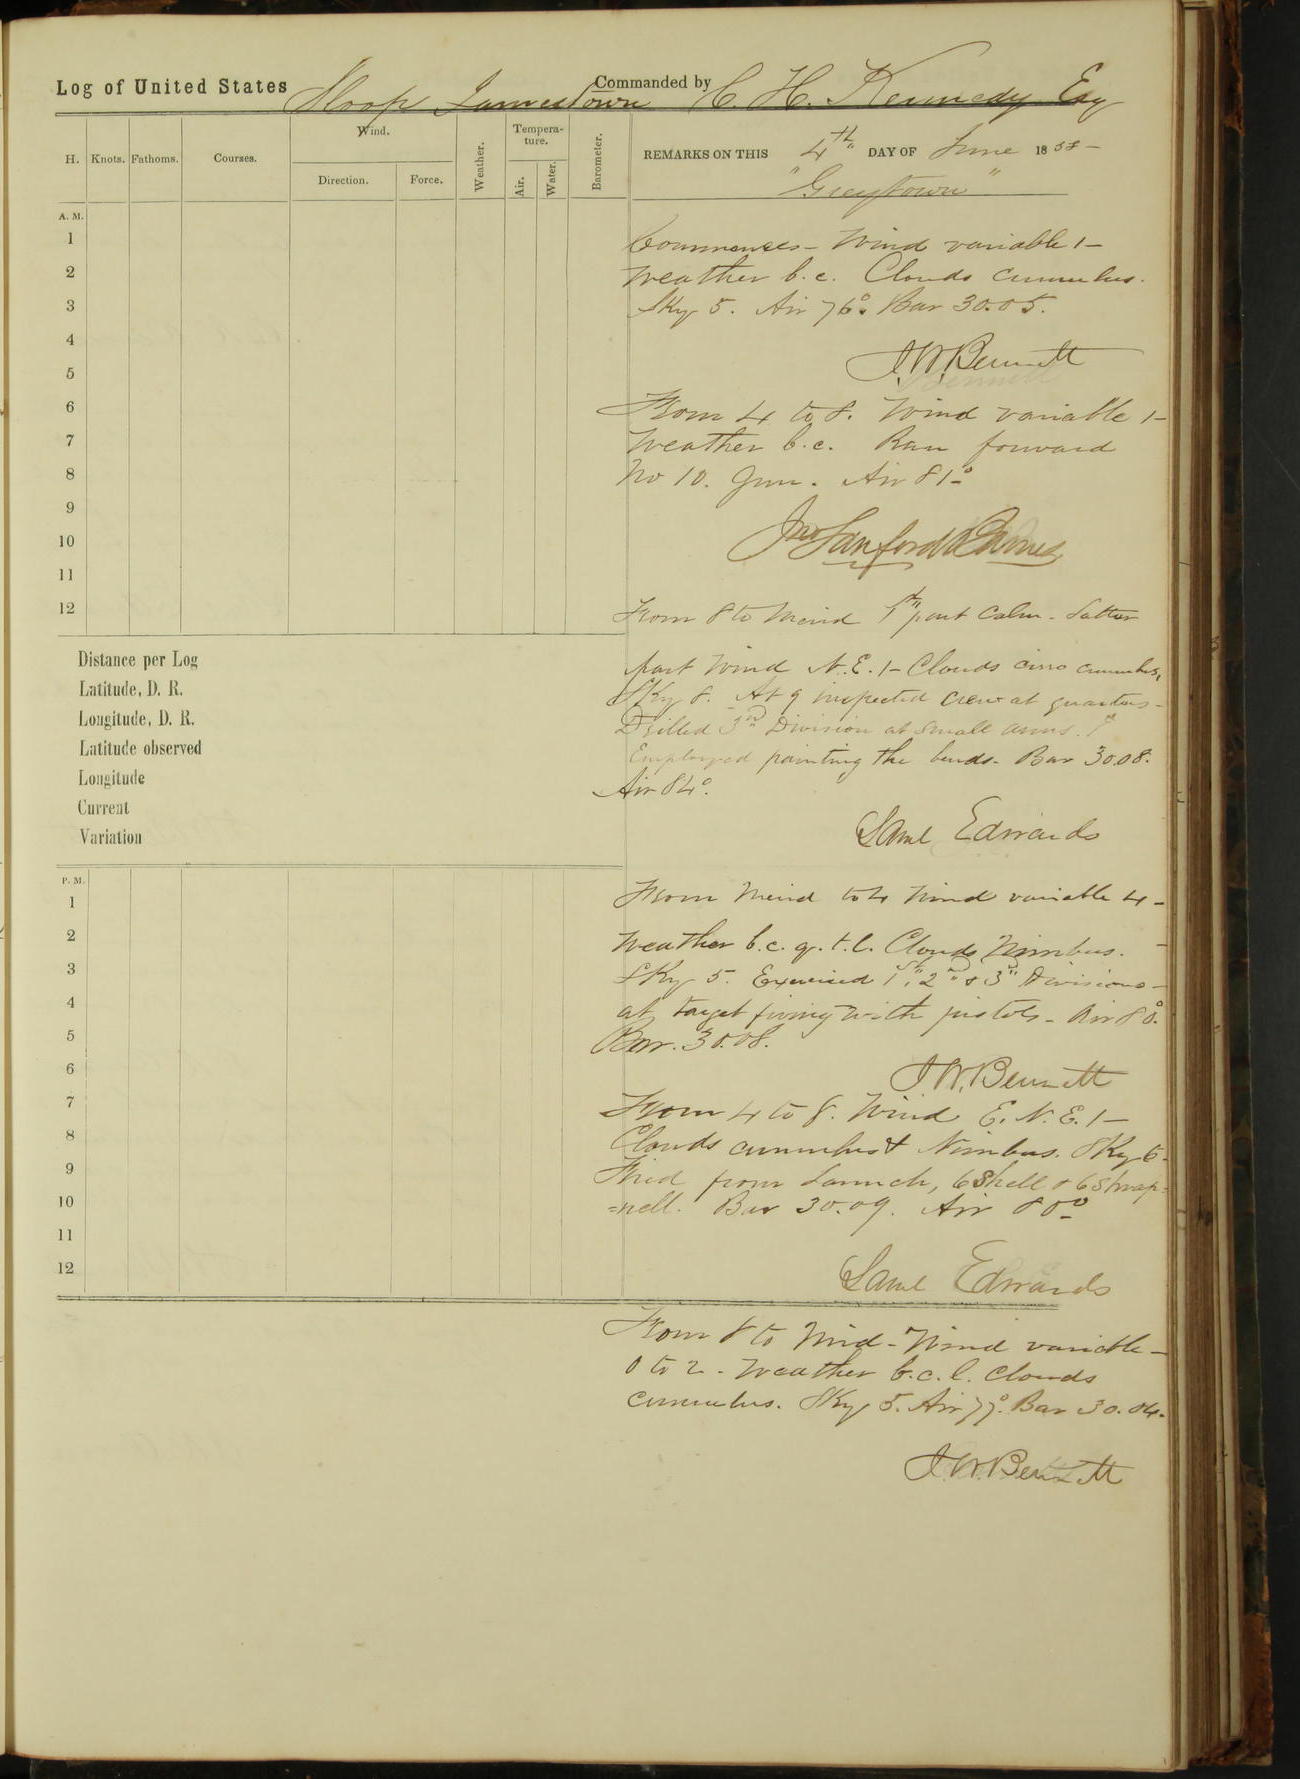 Log of United States Sloop Jamestown Commanded by C. H. Kennedy Esq
H. Knots. Fathoms. Courses. Wind. Direction. Force. Weather. Tempera-ture. Air. Water. Barometer.
REMARKS ON THIS 4th DAY OF June 1858 -
"Greytown"
A. M.
1
2
3
4
5
6
7
8
9
10
11
12
Commences - Wind variable 1 -
Weather b.c. Clouds cumulus.
Sky 5. Air 76°. Bar 30.05.
J. W. Bennett
From 4 to 8. Wind variable 1 -
Weather b.c. Ran forward
No 10. Gun. Air 81°
Jno Sanford Barnes
From 8 to Merid 1st part Calm. Latter
part Wind N.E. 1 - Clouds cirro cumulus,
Sky 8. At 9 inspected crew at quarters -
Drilled 3rd Division at small arms.
Employed painting the bends. Bar 30.08.
Air 84°.
Saml Edwards
Distance per Log
Latitude, D. R.
Longitude, D. R.
Latitude observed
Longitude
Current
Variation
P. M.
1
2
3
4
5
6
7
8
9
10
11
12
From Merid to 4 Wind variable 4 -
Weather b.c.q.t.l. Clouds Nimbus.
Sky 5. Exercised 1st, 2nd & 3rd Divisions -
at target firing with pistols - Air 80°.
Bar. 30.08.
J. W. Bennett
From 4 to 8. Wind E.N.E. 1 -
Clouds cumulus & Nimbus. Sky 6 -
Fired from Launch, 6 Shell & 6 Shrap=
=nell. Bar 30.09. Air 80°
Saml Edwards
From 8 to Mid - Wind variable -
0 to 2 - Weather b.c.l. Clouds
cumulus. Sky 5. Air 77°. Bar 30.04.
J. W. Bennett